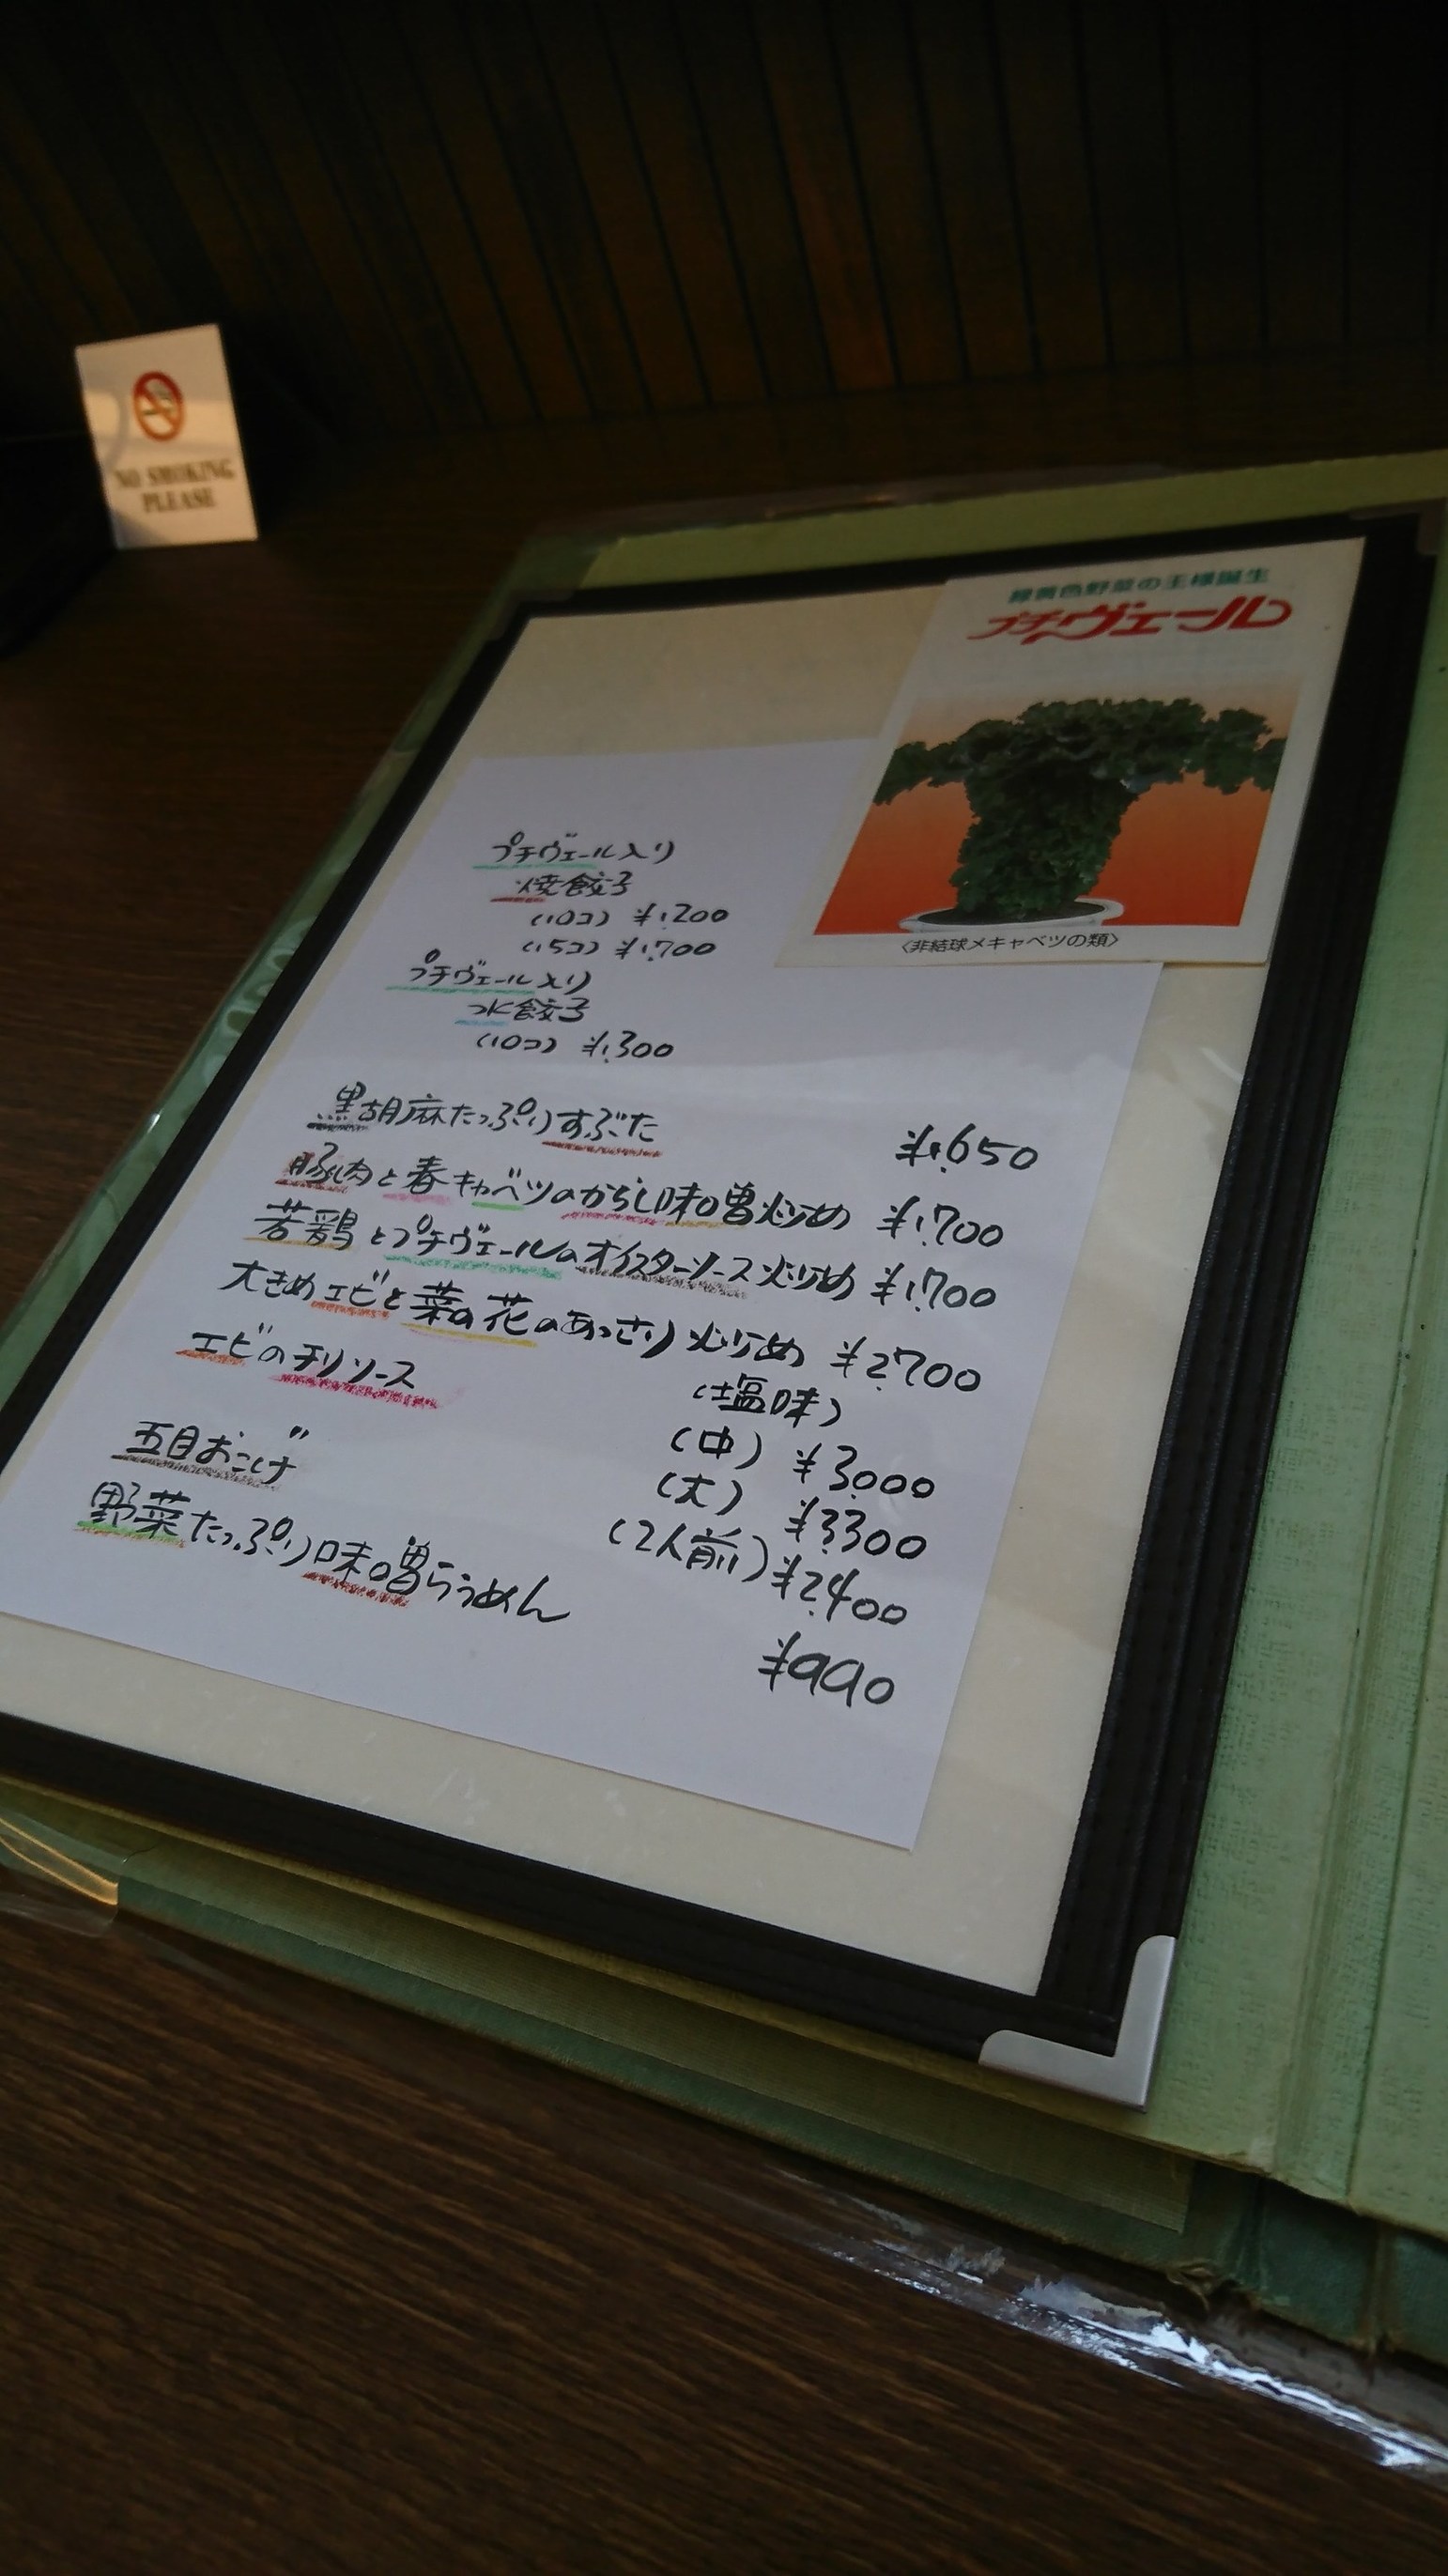 NO SMOKING
PLEASE
緑黄色野菜の王様誕生
プチヴェール
〈非結球メキャベツの類〉
プチヴェール入り
焼餃子
(10コ) ¥1,200
(15コ) ¥1,700
プチヴェール入り
水餃子
(10コ) ¥1,300
黒胡麻たっぷりすぶた ¥1,650
豚肉と春キャベツのからし味噌炒め ¥1,700
若鶏とプチヴェールのオイスターソース炒め ¥1,700
大きめエビと菜の花のあっさり炒め ¥2,700
(塩味)
エビのチリソース (中) ¥3,000
(大) ¥3,300
五目おこげ (2人前) ¥2,400
野菜たっぷり味噌らうめん ¥990